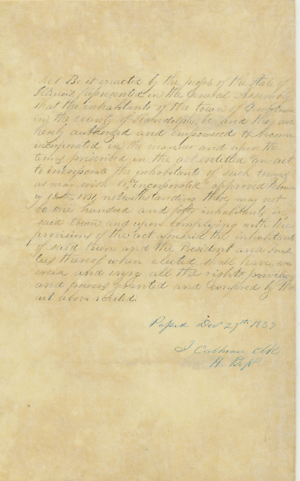 Sec 1 Be it enacted by the people of the State of
Illinois, represented in the General Assembly
that the inhabitants of the town of
in the county of Randolph, be and they are
hereby authorized and empowered to become
incorporated in the manner and upon the
terms prescribed in the act entitled an act
to incorporate the inhabitants of such towns
as may wish to be Incorporated approved
1831, notwithstanding there may not
be one hundred and fifty inhabitants in
said town and upon complying with the
provisions of the act aforesaid the inhabitants
of said town and the President and Trus
tees thereof when elected shall have
and enjoy all the rights, privileges
and powers granted and conferred by the
act above recited.
Passed Dec 27th 1839
J Calhoun Clk
H. Reps